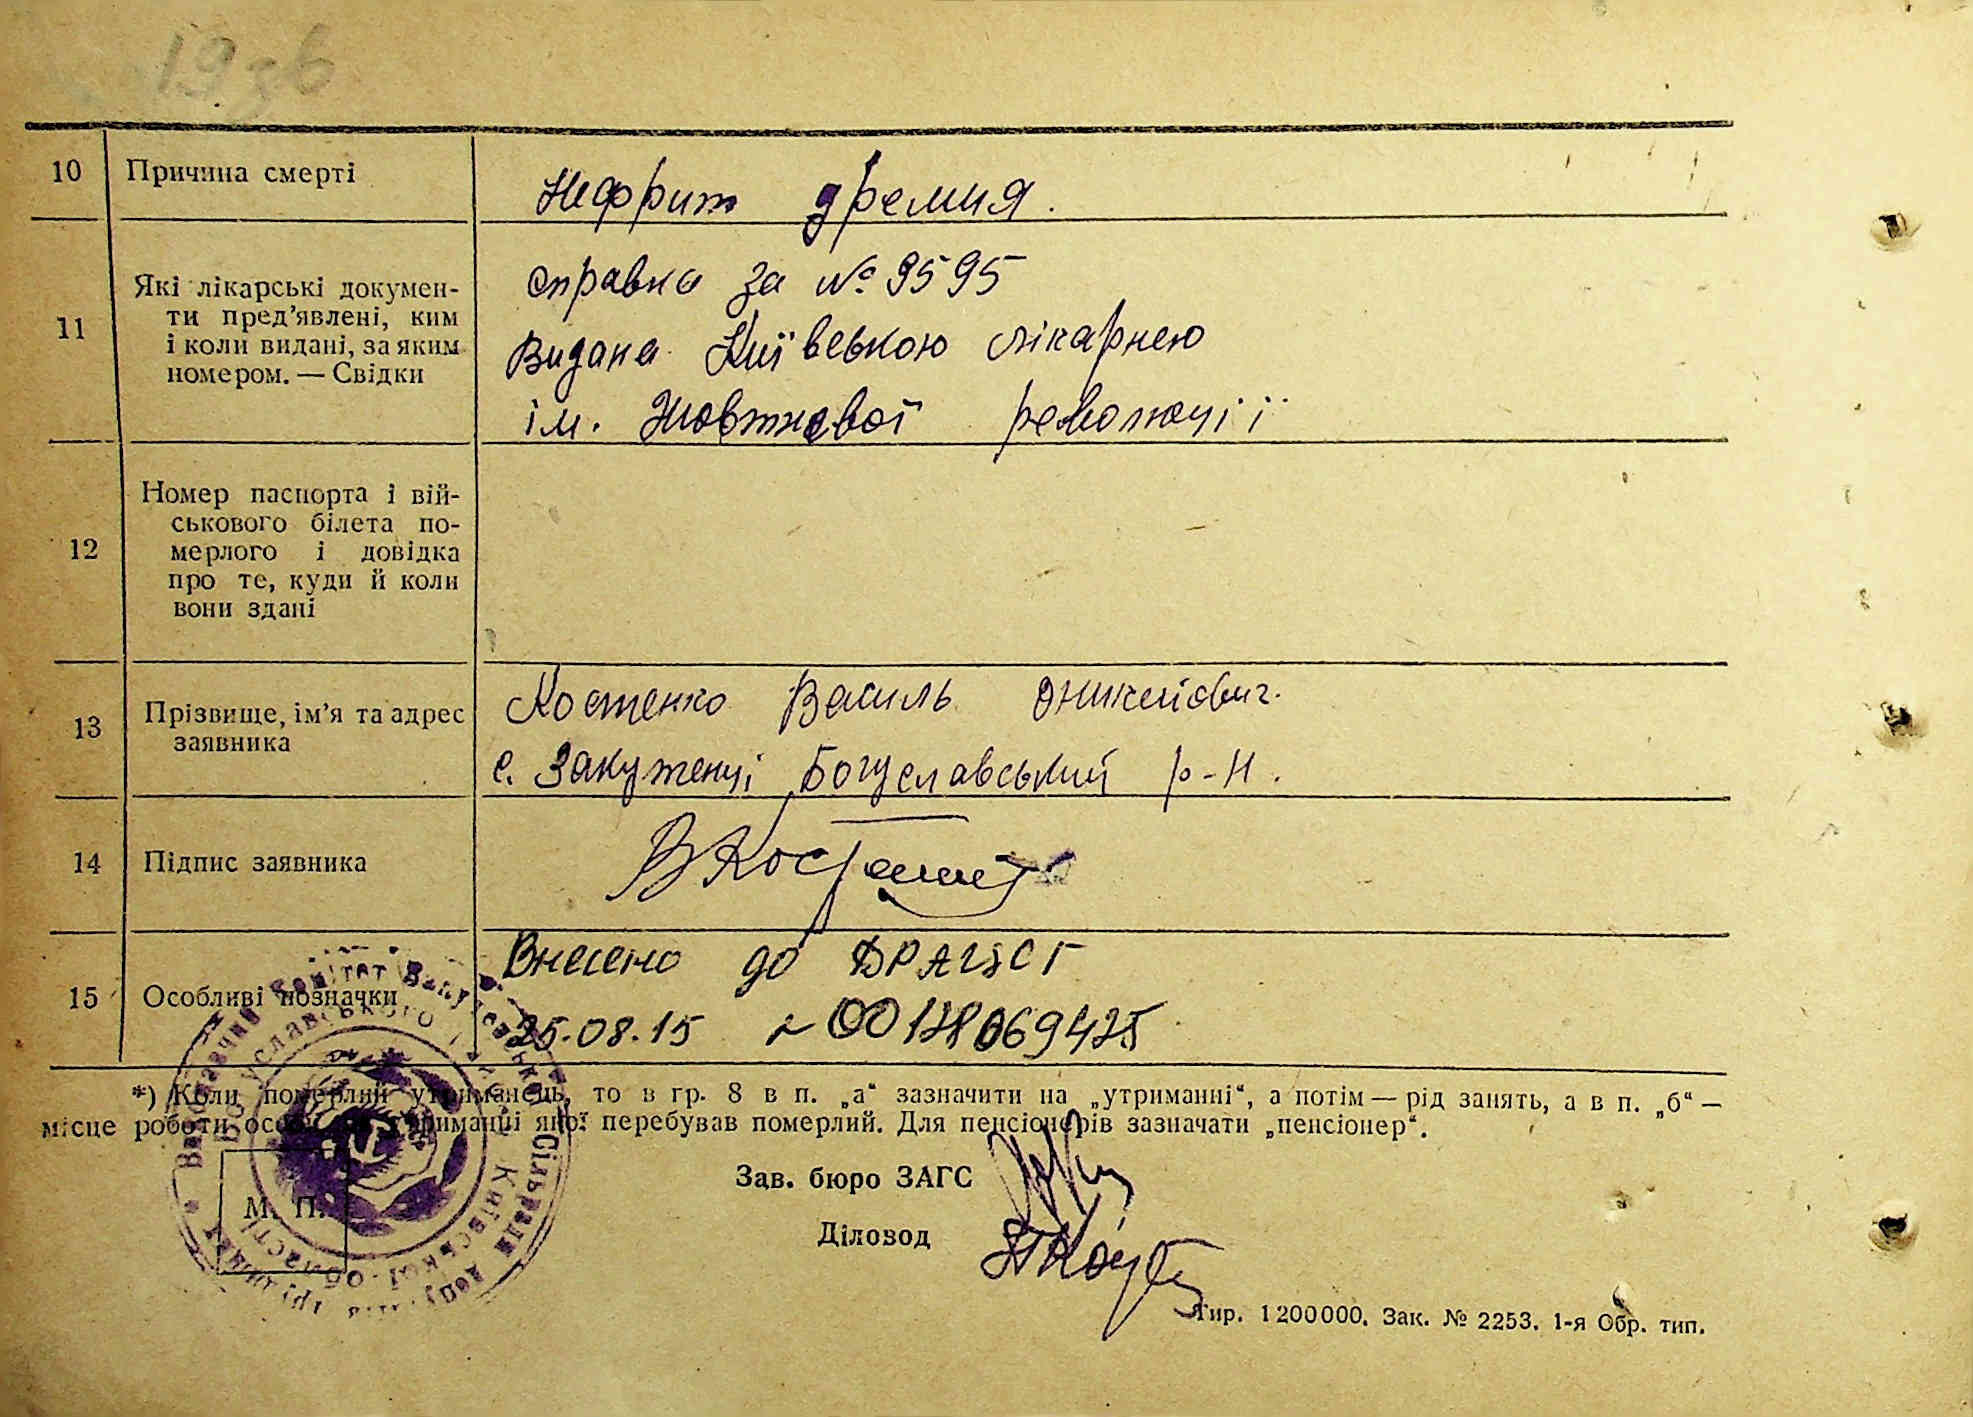 10 Причина смерті Нефрит уремия.
11 Які лікарські докумен-
ти пред’явлені, ким
і коли видані, за яким
номером. — Свідки
справка за № 9595
Видана Київською лікарнею
ім. Жовтневої революції
12 Номер паспорта і вій-
ськового білета по-
мерлого і довідка
про те, куди й коли
вони здані
13 Прізвище, ім’я та адрес
заявника
Костенко Василь
с. Закутенці Богуславський р-н.
14 Підпис заявника
15 Особливі позначки
Внесено до ДРАЦСГ
25.08.15
*) Коли померлий утриманець, то в гр. 8 в п. „а“ зазначити на „утриманні“, а потім — рід занять, а в п. „б“ —
місце роботи особи, на утриманні якої перебував померлий. Для пенсіонерів зазначати „пенсіонер“.
Зав. бюро ЗАГС
М. П.
Діловод
Тир. 1200000. Зак. № 2253. 1-я Обр. тип.